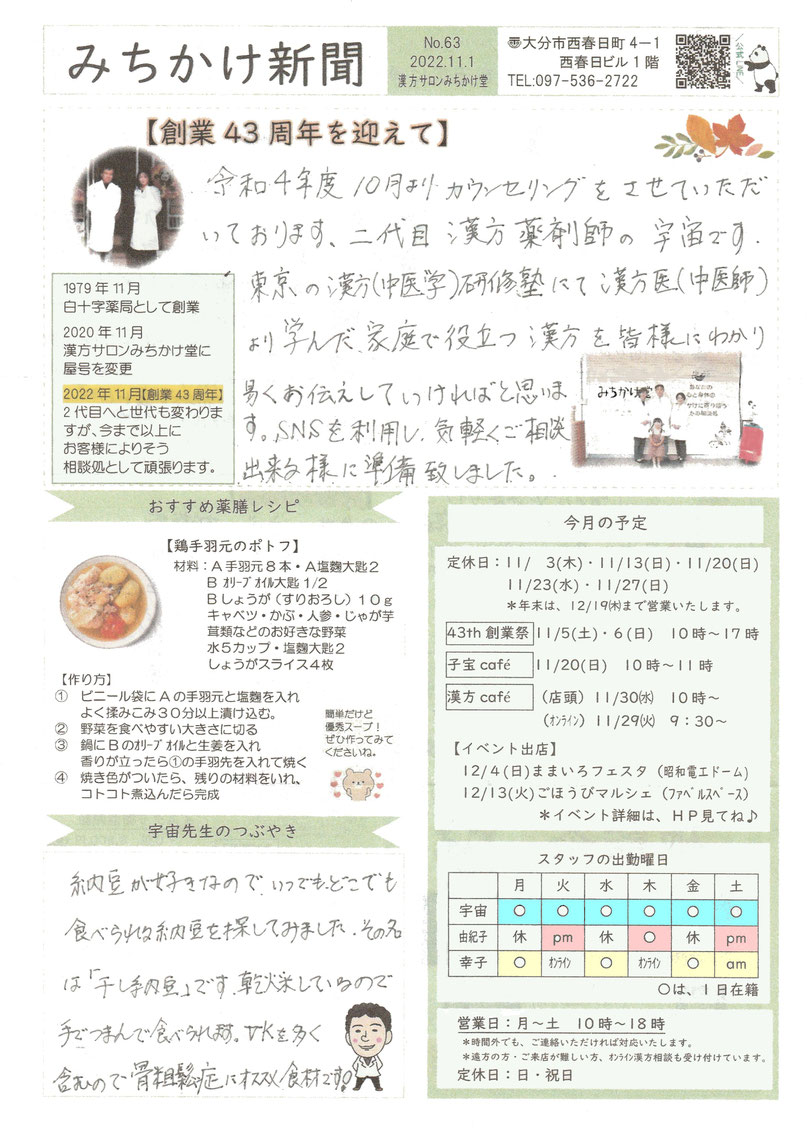 みちかけ新聞
No.63
2022.11.1
漢方サロンみちかけ堂
〠大分市西春日町4ー1
西春日ビル1階
TEL:097-536-2722
公式LINE
【創業43周年を迎えて】
令和4年度10月よりカウンセリングをさせていただ
いております、二代目漢方薬剤師の宇宙です.
東京の漢方(中医学)研修塾にて漢方医(中医師)
より学んだ、家庭で役立つ漢方を皆様にわかり
易くお伝えしていければと思いま
す。SNSを利用し、気軽くご相談
出来る様に準備致しました。
1979年11月
白十字薬局として創業
2020年11月
漢方サロンみちかけ堂に
屋号を変更
2022年11月【創業43周年】
2代目へと世代も変わりま
すが、今まで以上に
お客様によりそう
相談処として頑張ります。
みちかけ堂
あなたの
心と身体の
かけに寄り添う
おすすめ薬膳レシピ
【鶏手羽元のポトフ】
材料：A手羽元8本・A塩麴大匙2
B ｵﾘｰﾌﾞｵｲﾙ大匙1/2
Bしょうが（すりおろし）10g
キャベツ・かぶ・人参・じゃが芋
茸類などのお好きな野菜
水5カップ・塩麴大匙2
しょうがスライス4枚
【作り方】
① ビニール袋にAの手羽元と塩麴を入れ
よく揉みこみ30分以上漬け込む。
② 野菜を食べやすい大きさに切る
③ 鍋にBのｵﾘｰﾌﾞｵｲﾙと生姜を入れ
香りが立ったら①の手羽先を入れて焼く
④ 焼き色がついたら、残りの材料をいれ、
コトコト煮込んだら完成
簡単だけど
優秀スープ！
ぜひ作ってみて
くださいね。
宇宙先生のつぶやき
納豆が好きなので、いつでも、どこでも
食べられる納豆を探してみました。その名
は「干し納豆」です。乾燥しているので
手でつまんで食べられます。VKを多く
含むので骨粗鬆症にオススメ食材です!
今月の予定
定休日：11/ 3(木)・11/13(日)・11/20(日)
11/23(水)・11/27(日)
＊年末は、12/19㈭まで営業いたします。
43th創業祭 11/5(土)・6(日) 10時～17時
子宝café 11/20(日) 10時～11時
漢方café （店頭）11/30㈬ 10時～
（ｵﾝﾗｲﾝ）11/29㈫ 9：30～
【イベント出店】
12/4(日)ままいろフェスタ（昭和電工ドーム）
12/13(火)ごほうびマルシェ（ﾌｧﾍﾞﾙｽﾍﾟｰｽ）
＊イベント詳細は、HP見てね♪
スタッフの出勤曜日
月 火 水 木 金 土
宇宙 〇 〇 〇 〇 〇 〇
由紀子 休 pm 休 〇 休 pm
幸子 〇 ｵﾝﾗｲﾝ 〇 ｵﾝﾗｲﾝ 〇 am
〇は、1日在籍
営業日：月～土 10時～18時
＊時間外でも、ご連絡いただければ対応いたします。
＊遠方の方・ご来店が難しい方、ｵﾝﾗｲﾝ漢方相談も受け付けています。
定休日：日・祝日